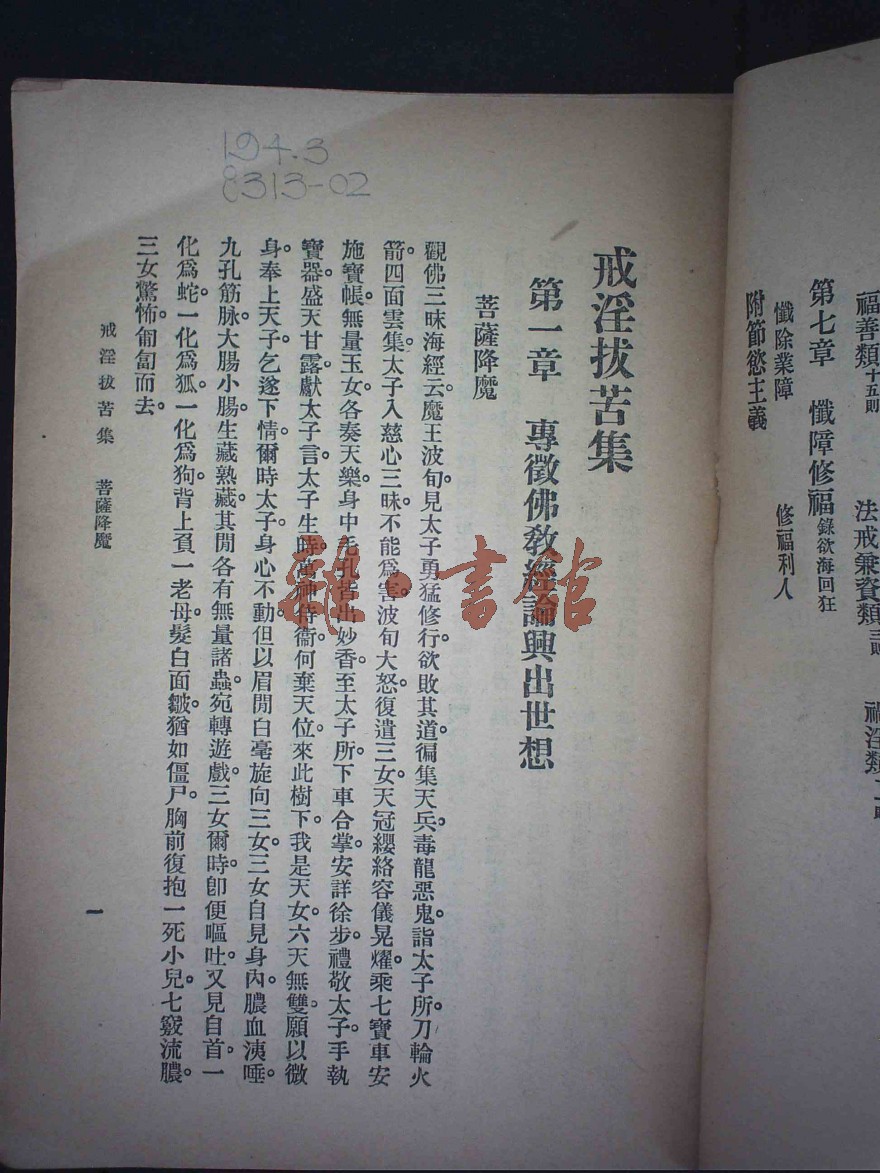 福善類十五則　法戒兼資類　禍淫類
第七章　懺障修福錄欲海回狂
懺除業障　修福利人
附節慾主義
194.3
8313-02
戒淫拔苦集
第一章　專徵佛教經論興出世想
菩薩降魔
觀佛三昧海經云魔王波旬見太子勇猛修行欲敗其道徧集天兵毒龍惡鬼。詣太子所刀輪火
箭。四面雲集。太子入慈心三昧不能爲害。波旬大怒。復遣三女。天冠纓絡容儀晃耀。乘七寶車安
施寶帳。無量玉女。各奏天樂。身中毛孔皆出妙香。至太子所。下車合掌。安詳徐步。禮敬太子。手執
寶器。盛天甘露。獻太子言。太子生時。萬神侍衞。何棄天位。來此樹下。我是天女。六天無雙。願以微
身。奉上天子。乞遂下情。爾時太子。身心不動。但以眉閒白毫。旋向三女。三女自見身內。膿血洟唾。
九孔筋脉。大腸小腸。生藏熟藏。其閒各有無量諸蟲。宛轉遊戲。三女爾時。卽便嘔吐。又見自首。一
化爲蛇。一化爲狐。一化爲狗。背上負一老母。髮白面皺。猶如僵尸。胸前復抱一死小兒。七竅流膿。
三女驚怖。匍匐而去。
戒淫拔苦集　菩薩降魔
一
雜·書館